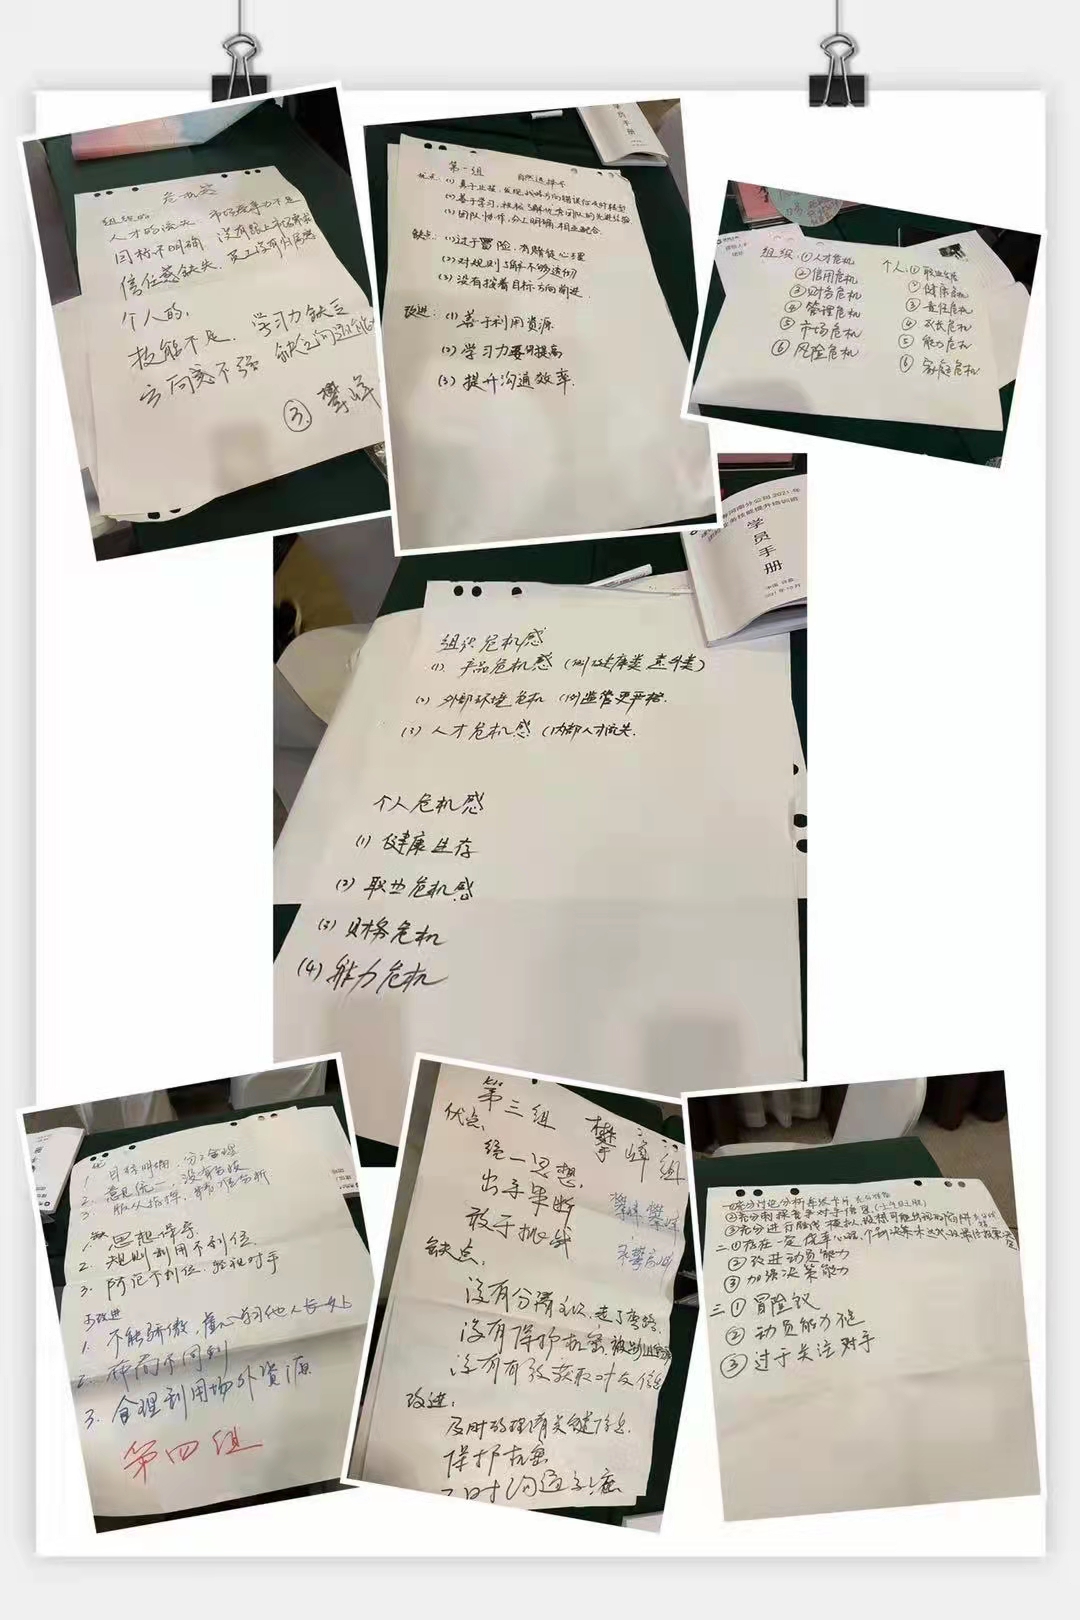 危机感
组织的
人才的流失 市场竞争力不足
目标不明确 没有跟上市场需求
信任感缺失 员工没有归属感
个人的,
技能不足 学习力缺乏
方向感不强 缺乏沟通能力
③ 樊峰
员手册
第一组 自然选择号
优点: (1) 勇于止损,发现战略方向错误做及时转型
(2) 善于学习,积极了解优秀团队的先进经验
(3) 团队协作,分工明确,相互配合.
缺点: (1) 过于冒险,有赌徒心理
(2) 对规则了解不够透彻
(3) 没有按着目标方向前进.
改进: (1) 善于利用资源
(2) 学习力要有提高
(3) 提升沟通效率.
组织: ① 人才危机
② 信用危机
③ 财务危机
④ 管理危机
⑤ 市场危机
⑥ 风险危机
个人: ① 职业危机
② 健康危机
③ 责任危机
④ 成长危机
⑤ 能力危机
⑥ 家庭危机
河南分公司2021年
业务技能提升培训班
学员手册
组织危机感
(1) 产品危机感 (例健康类 意外类)
(2) 外部环境危机 (例监管更严格.
(3) 人才危机感 (内部人才流失.
个人危机感
(1) 健康生存
(2) 职业危机感
(3) 财务危机
(4) 能力危机
1. 目标明确,分工合理
2. 意见统一,没有
3. 服从指挥,
1. 思想保守
2. 规则利用不到位.
3. 防范不到位.轻视对手
改进
1. 不能骄傲,虚心学习他人长处
2. 存而不同到
3. 合理利用场外资源
第四组
第三组 樊峰组
优点:
统一思想,
出手果断
敢于挑战
缺点,
没有分清主次,走了弯路.
没有保护机密,被别组
没有有效获取对友信息
改进:
及时的理有关键信息
保护机密
及时沟通
一①充分讨论分析每张卡片
②充分刺探竞争对手信息
③充分进行脑战模拟,设想可能出现的
二①存在一定侥幸心理,个别决策未达成
②改进动员能力
③加强决策能力
三①冒险议
②动员能力
③过于关注对手